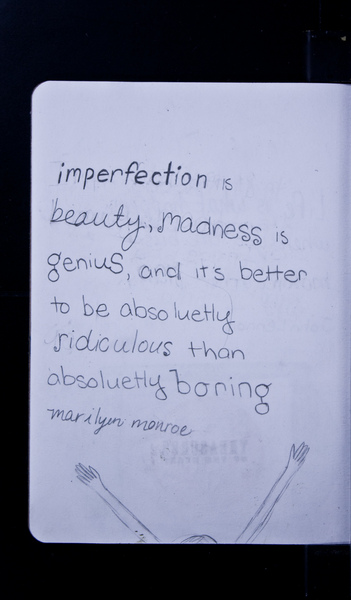 imperfection is
beauty, madness is
genius, and it's better
to be absoluetly
ridiculous than
absoluetly boring
marilyn monroe